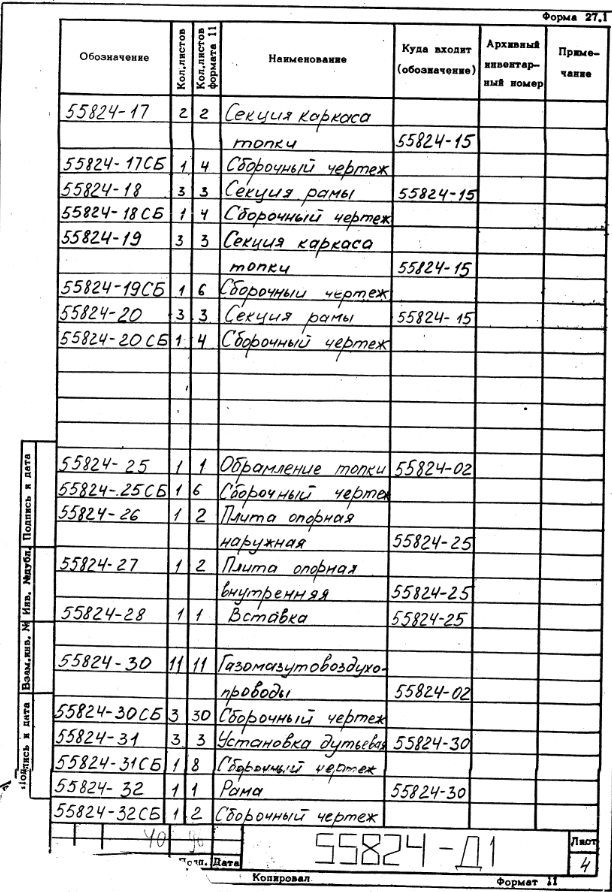 Форма 27.1
Обозначение Кол.листов Кол.листов формата 11 Наименование Куда входит (обозначение) Архивный инвентарный номер Примечание
55824-17 2 2 Секция каркаса
топки 55824-15
55824-17СБ 1 4 Сборочный чертеж
55824-18 3 3 Секция рамы 55824-15
55824-18СБ 1 4 Сборочный чертеж
55824-19 3 3 Секция каркаса
топки 55824-15
55824-19СБ 1 6 Сборочный чертеж
55824-20 3 3 Секция рамы 55824-15
55824-20СБ 1 4 Сборочный чертеж
55824-25 1 1 Обрамление топки 55824-02
55824-25СБ 1 6 Сборочный чертеж
55824-26 1 2 Плита опорная
наружная 55824-25
55824-27 1 2 Плита опорная
внутренняя 55824-25
55824-28 1 1 Вставка 55824-25
55824-30 11 11 Газомазутовоздухо-
проводы 55824-02
55824-30СБ 3 30 Сборочный чертеж
55824-31 3 3 Установка дутьевая 55824-30
55824-31СБ 1 8 Сборочный чертеж
55824-32 1 1 Рама 55824-30
55824-32СБ 1 2 Сборочный чертеж
Подпись и дата
Инв. №дубл.
Взам.инв. №
Подпись и дата
55824-Д1
Лист
4
Дата
Копировал
Формат 11